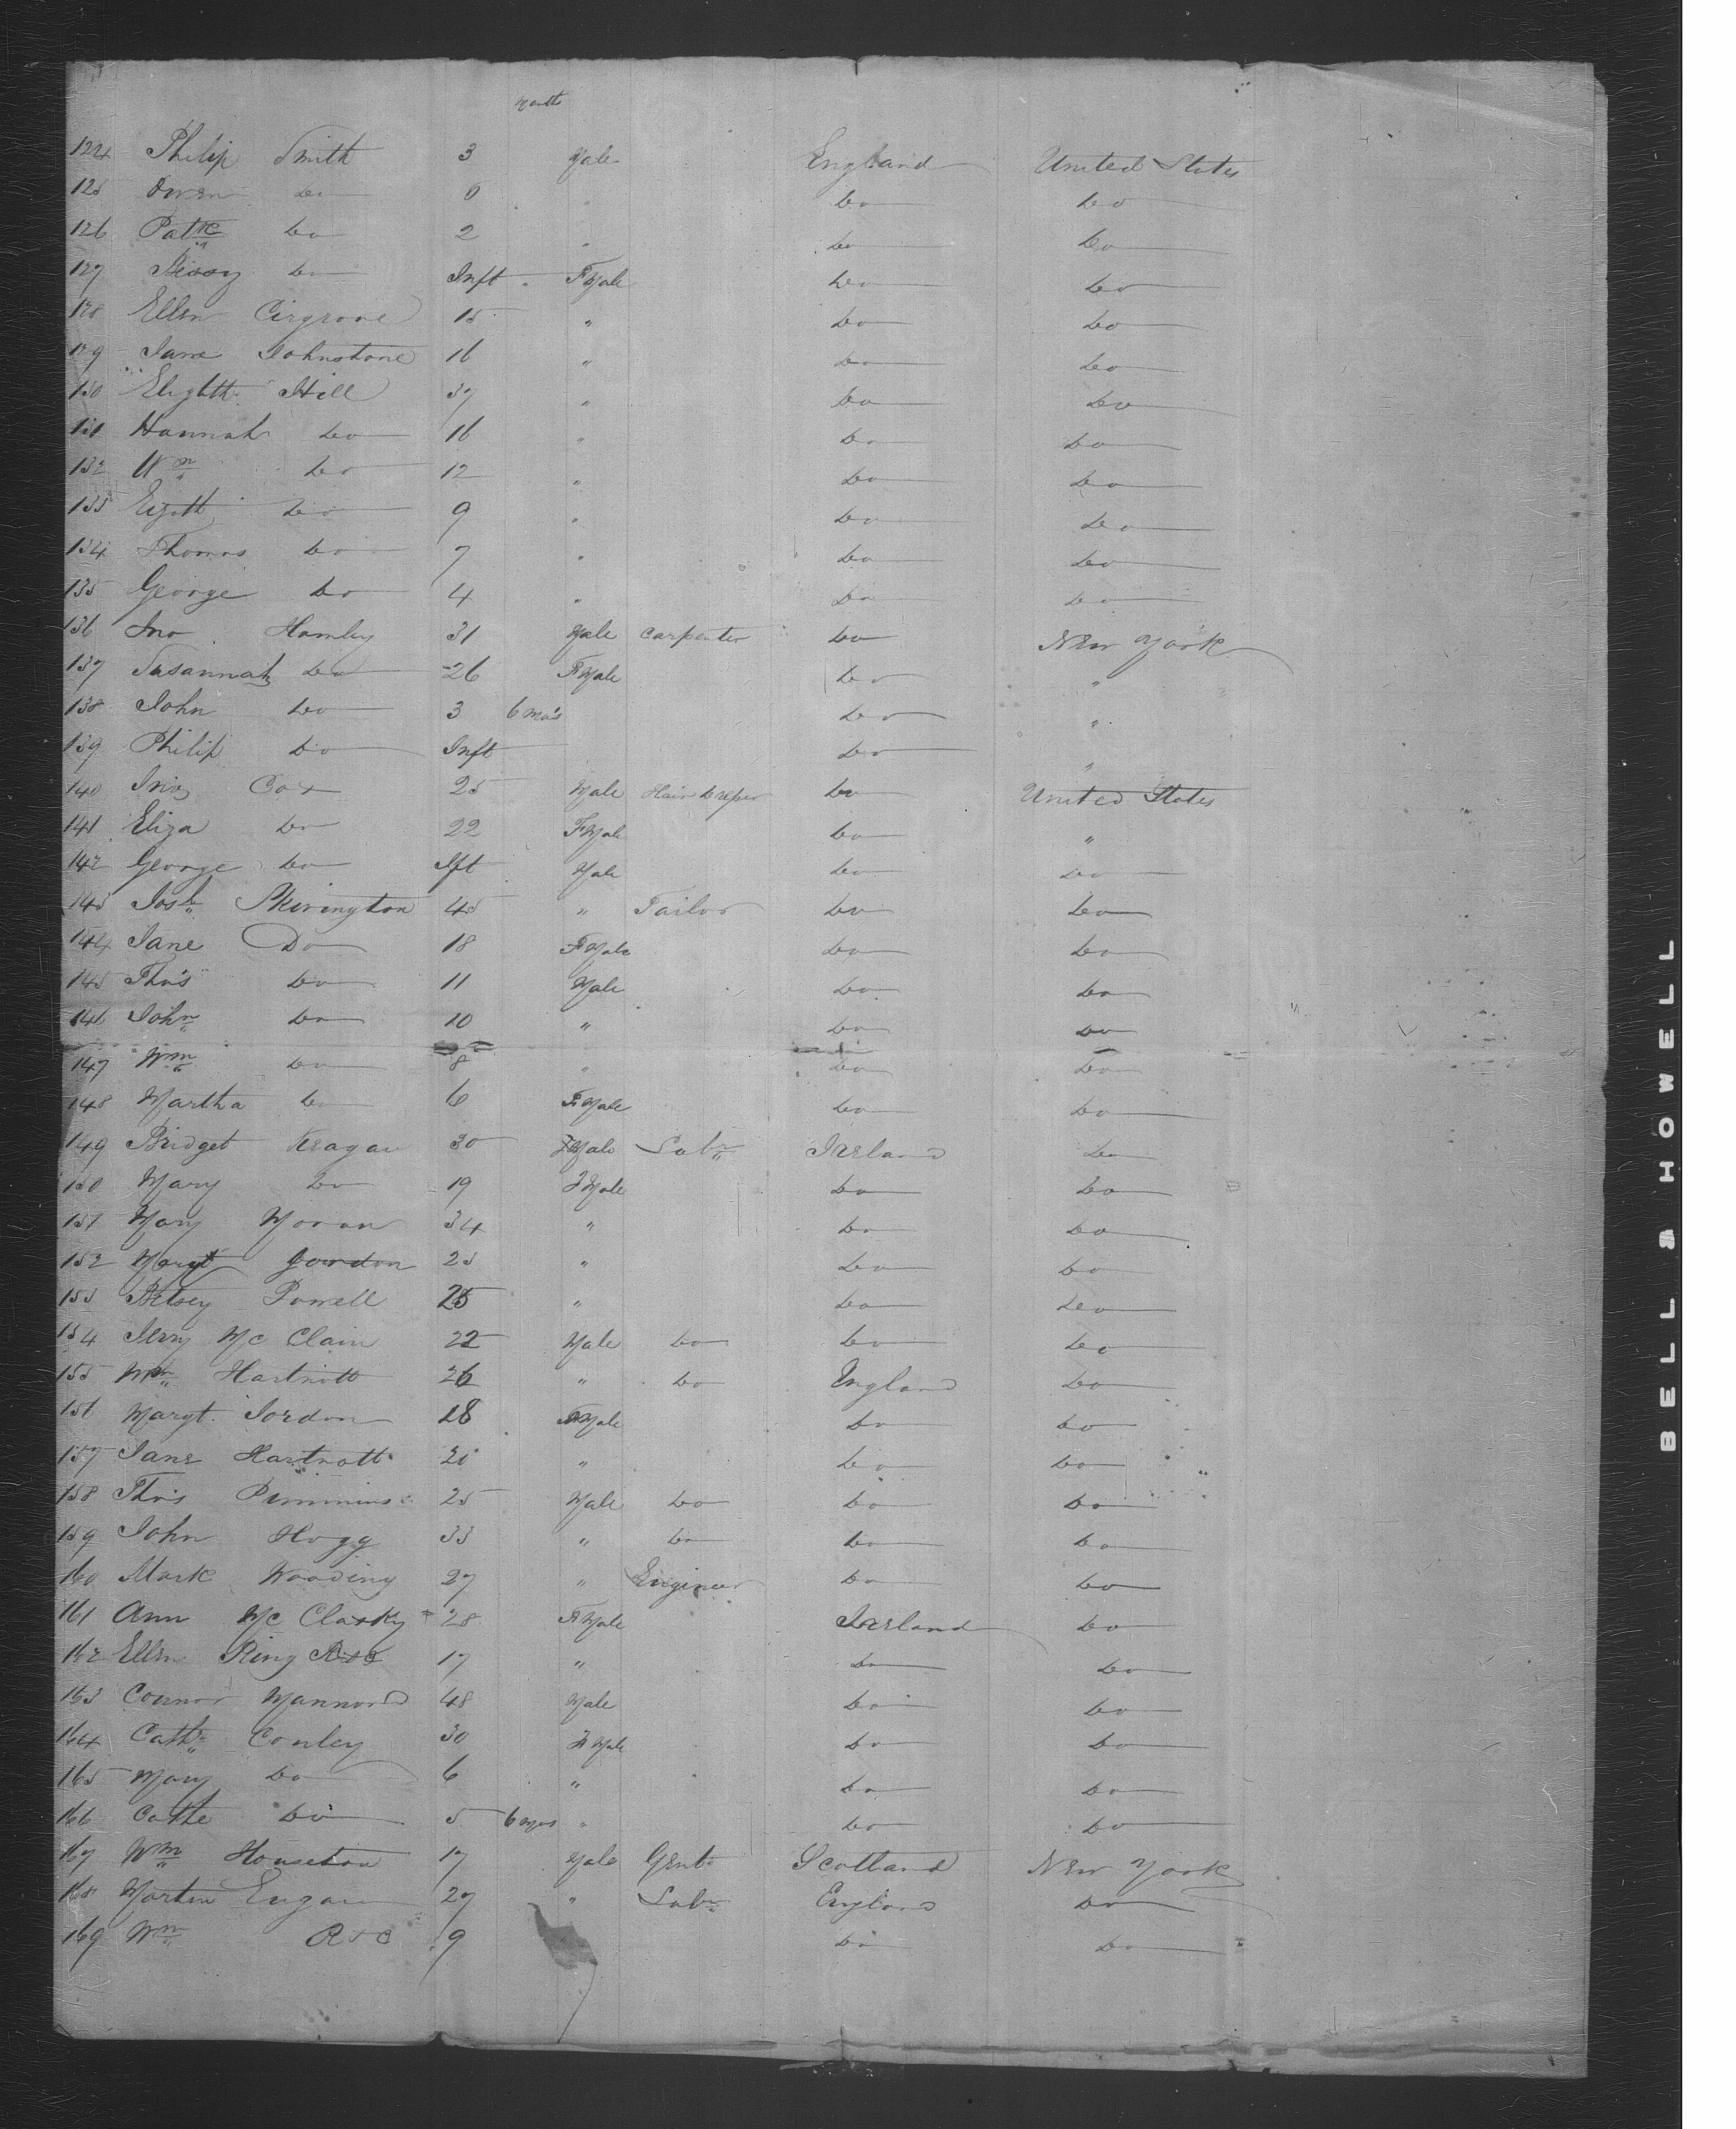 Month
124 Philip Smith 3 Male England United States
125 Owen do 6 " do do
126 Patk do 2 " do do
127 Bessy do Inft. FMale do do
128 Ellen 15 " do do
129 Jane Johnstone 16 " do do
130 Elizbth Hill 37 " do do
131 Hannah do 16 " do do
132 Wm do 12 " do do
133 do 9 " do do
134 Thomas do 7 " do do
135 George do 4 " do do
136 Jno Hamley 31 Male Carpenter do New York
137 Susannah do 26 FMale do "
138 John do 3 6 mo's do "
139 Philip do Inft do "
140 Cox 25 Male do United States
141 Eliza do 22 FMale do "
142 George do Ift Male do do
143 Josh Skivington 45 " Tailor do do
144 Jane Do 18 FMale do do
145 Tho's do 11 Male do do
146 John do 10 " do do
147 Wm do 8 " do do
148 Martha do 6 FMale do do
149 Bridget Keagan 30 FMale Labr Ireland do
150 Mary do 19 FMale do do
151 Mary Moran 34 " do do
152 Margt Gordon 25 " do do
153 Betsey Powell 25 " do do
154 Jerry Mc Clain 22 Male do do do
155 Wm Hartnott 26 " do England do
156 Margt. Jordon 28 FMale do do
157 Jane Hartnott 20 " do do
158 Tho's Pimmins 25 Male do do do
159 John Hogg 33 " do do do
160 Mark Wooding 27 " Engineer do do
161 Ann Mc Clasky 28 FMale Ireland do
162 Ellen Ring 17 " do do
163 Connor Mannord 48 Male do do
164 Cath Conley 30 FMale do do
165 Mary do 6 " do do
166 Cathe do 5 6 Mos " do do
167 Wm Houseton 17 Male Gent Scotland New York
168 Martin Eugan 27 " Labr England do
169 Wm 9 do do
BELL & HOWELL